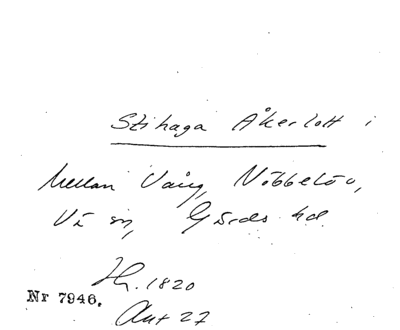 Stihaga Åkerlott i
Mellan Vång, Nöbbelöv,
Vä sn, Gärds hd.
Hr. 1820
Nr 7946.
Akt 27